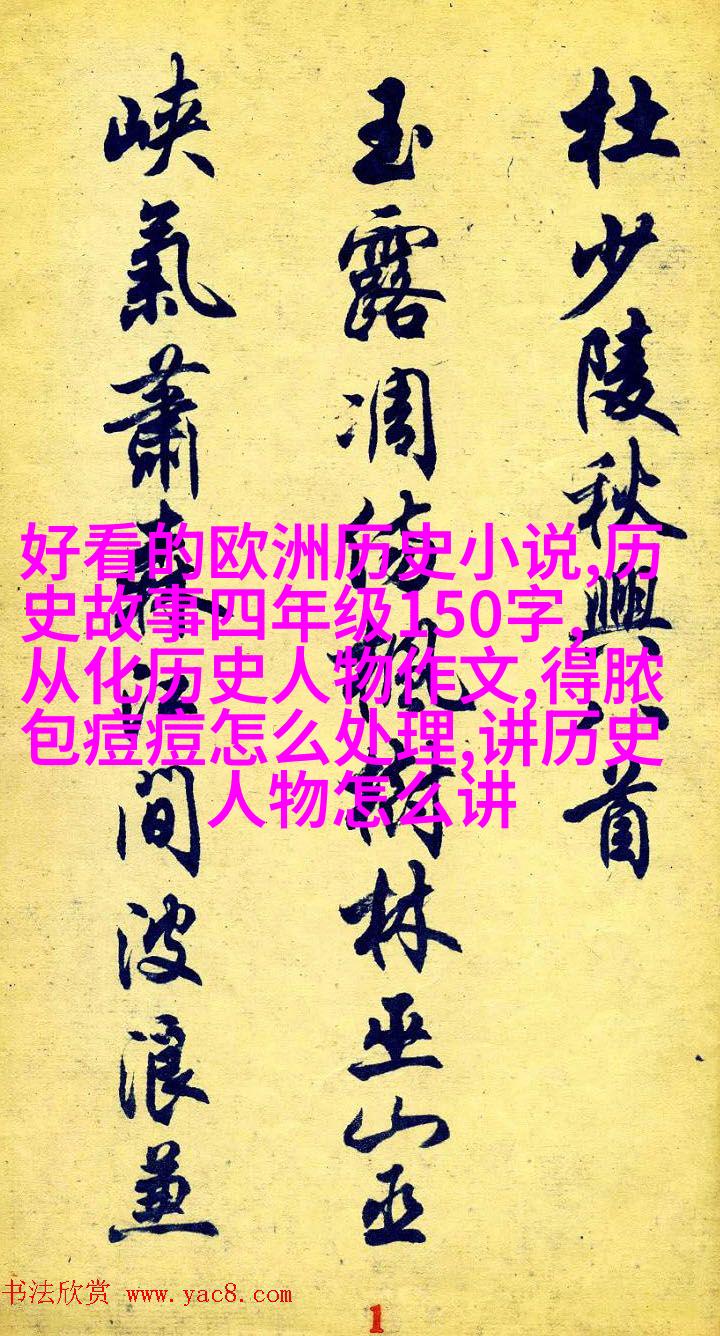 杜少陵秋興八首
玉露凋傷楓樹林巫山巫
峽氣蕭森江間波浪兼
好看的欧洲历史小说,历
史故事四年级150字,
从化历史人物作文,得脓
包痘痘怎么处理,讲历史
人物怎么讲
书法欣赏 www.yac8.com
1